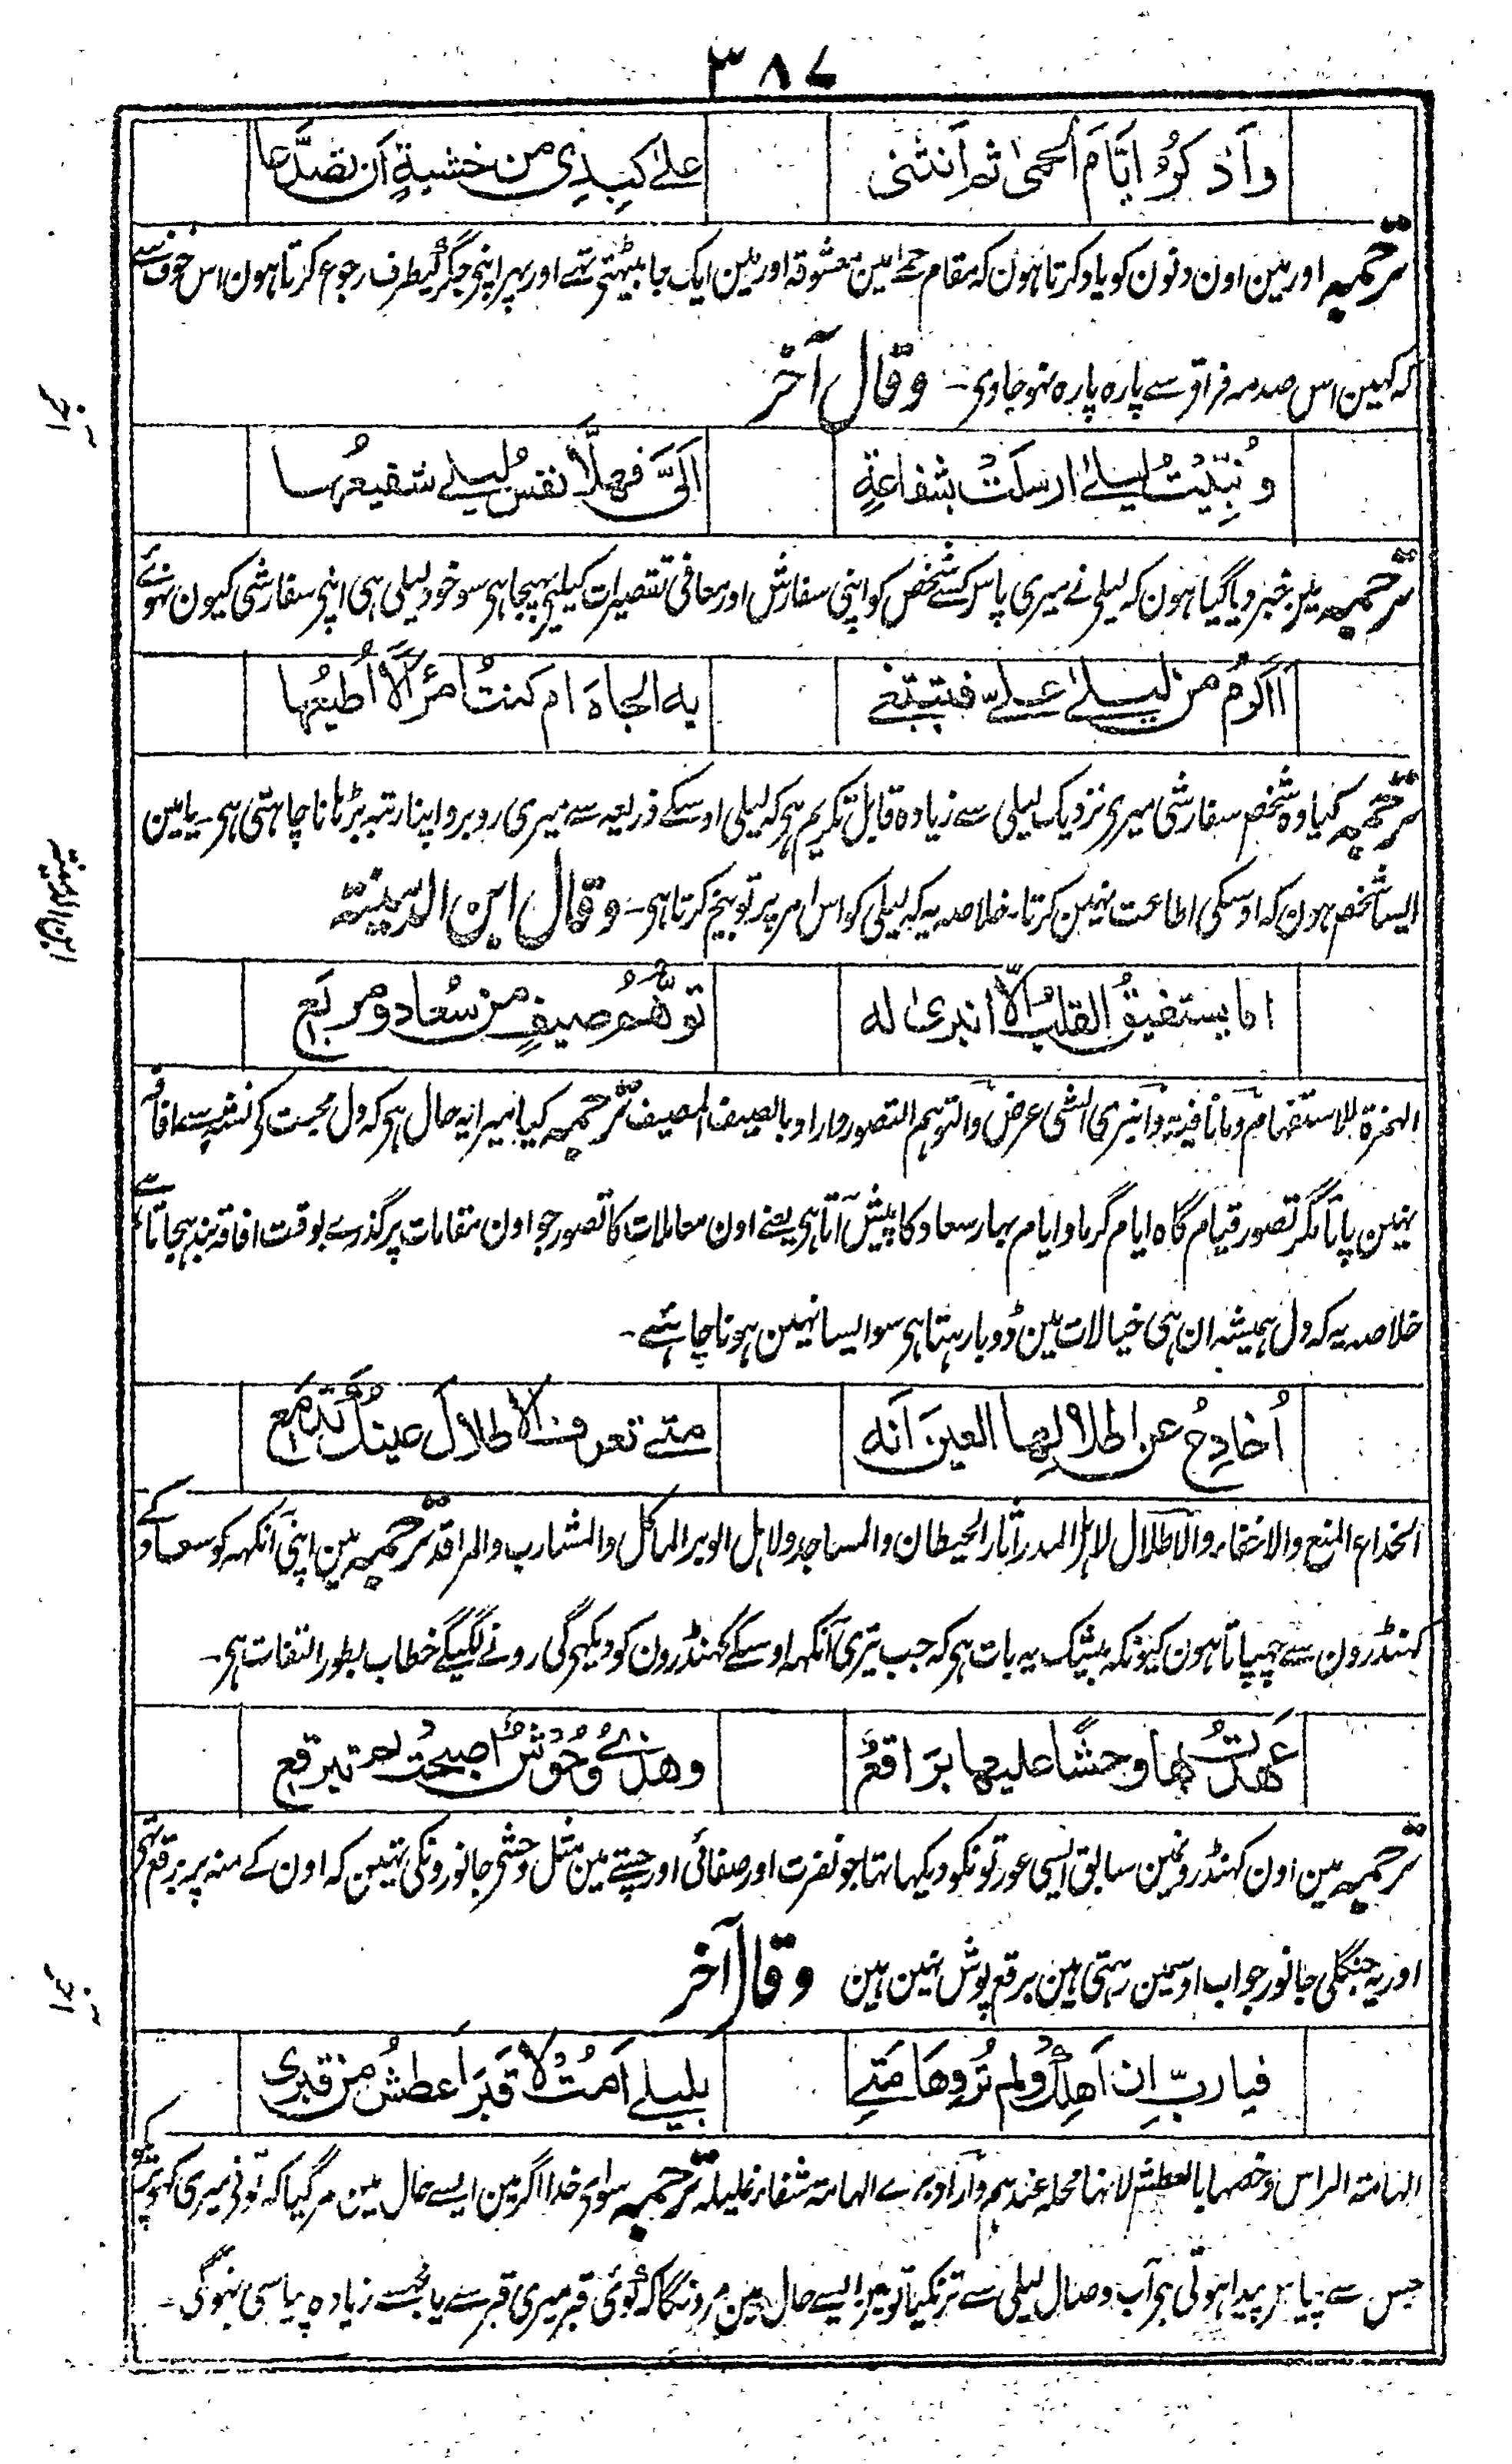 ٣٨٧
وَاَذكرُ ايّامَ الحمىٰ ثم اَنثنی علےٰ كبِدِی من خشيةٍ اَن تصدَّعا
ترجمہ اور مین اون دنون کو یاد کرتا ہون کہ مقام حمے امین معشوقہ اور مین ایک جا بیٹہتی تہے اور پہر اپنی جگر کیطرف رجوع کرتا ہون اس خوف سے
کہ کہین اس صدمہ فراق سے پارہ پارہ نہوجاوی۔ وقال آخر
آخر
ونُبِّئتُ ليلےٰ ارسلَتْ بشفاعةٍ اَلیَّ فهلَّا نفسُ ليلے شفيعُها
ترجمہ مین خبر دیا گیا ہون کہ لیلی نے میری پاس کسے شخص کو اپنی سفارش اور معافی تقصیرات کیلیی بہیجا ہی سو خود لیلی ہی اپنی سفارشی کیون نہوئے
أاكرمُ من ليلےٰ علےّ فتبتغے به الجاهَ ام كنتُ امرًأ لا اُطيعُها
ترجمہ کیا وہ شخص سفارشی میری نزدیک لیلی سے زیادہ قابل تکریم ہی کہ لیلی اوسکے ذریعہ سے میری روبرو اپنا رتبہ بڑہانا چاہتی ہی۔ یا مین
ایسا شخص ہون کہ اوسکی اطاعت نہین کرتا۔ خلاصہ یہ کہ لیلی کو اس امر پر توبیخ کرتا ہی۔ وقال ابن الدمینتہ
ابن الدمینتہ
اما يستفيقُ القلبُ الّا انبریٰ له توهُّمُ صيفٍ من سُعاد ومربَع
الہمزۃ للاستفہام وما نافیہ وانبری الشی عرض والتوہم التصور واراد بالصیف المصیف ترجمہ کیا میرا یہ حال ہی کہ دل محبت کے نشہ سے افاقہ
نہین پاتا مگر تصور قیام گاہ ایام گرما و ایام بہار سعاد کا پیش آتا ہی یعنے اون معاملات کا تصور جو اون مقامات پر گذرے بوقت افاقہ بندہجاتا ہے
خلاصہ یہ کہ دل ہمیشہ ان ہی خیالات مین ڈوبا رہتا ہی سو ایسا نہین ہونا چاہئے۔
اُخادِعُ عن اطلالِها العينَ اَنه متے تعرف الاطلالَ عينُكَ تدمَع
الخداع المنع والاخفاء والاطلال لاہل المدر آثار الحیطان والمساجد ولاہل الوبر الماکل والمشارب والمراقد ترجمہ مین اپنی آنکہہ کو سعاد کے
کہنڈرون سے چہپاتا ہون کیونکہ بیشک یہ بات ہی کہ جب تیری آنکہہ اوسکے کہنڈرون کو دیکہی گی رونے لگیگے خطاب بطور التفات ہی۔
عهدتُ بها وحشًا عليها براقعُ وهذے وُحُوشٌ اصبحت لم تبرقع
ترجمہ مین اون کہنڈرونمین سابق ایسی عورتونکو دیکہا تہا جو نفرت اور صفائی اور چستے مین مثل وحشی جانورونکی تہین کہ اون کے منہ پر برقع تہی
اور یہ جنگلی جانور جو اب اوسمین رہتی ہین برقع پوش نہین ہین وقال آخر
آخر
فيا ربّ اِن اَهلِكْ ولم تُروِ هامَتےِ بليلے اَمُتْ لا قبرَ اعطشُ من قبری
الہامتہ الراس وخصہا بالعطش لانہا محلہ عندہم واراد بری الہامتہ شفاء غلیلہ ترجمہ سو ای خدا اگر مین ایسے حال مین مر گیا کہ تو نی میری کہوپڑی کو
جس سے پیاس پیدا ہوتی ہی آب وصال لیلی سے تر نکیا تو مین ایسے حال مین مرونگا کہ کوئی قبر میری قبر سے یا مجہسے زیادہ پیاسی نہوگی۔